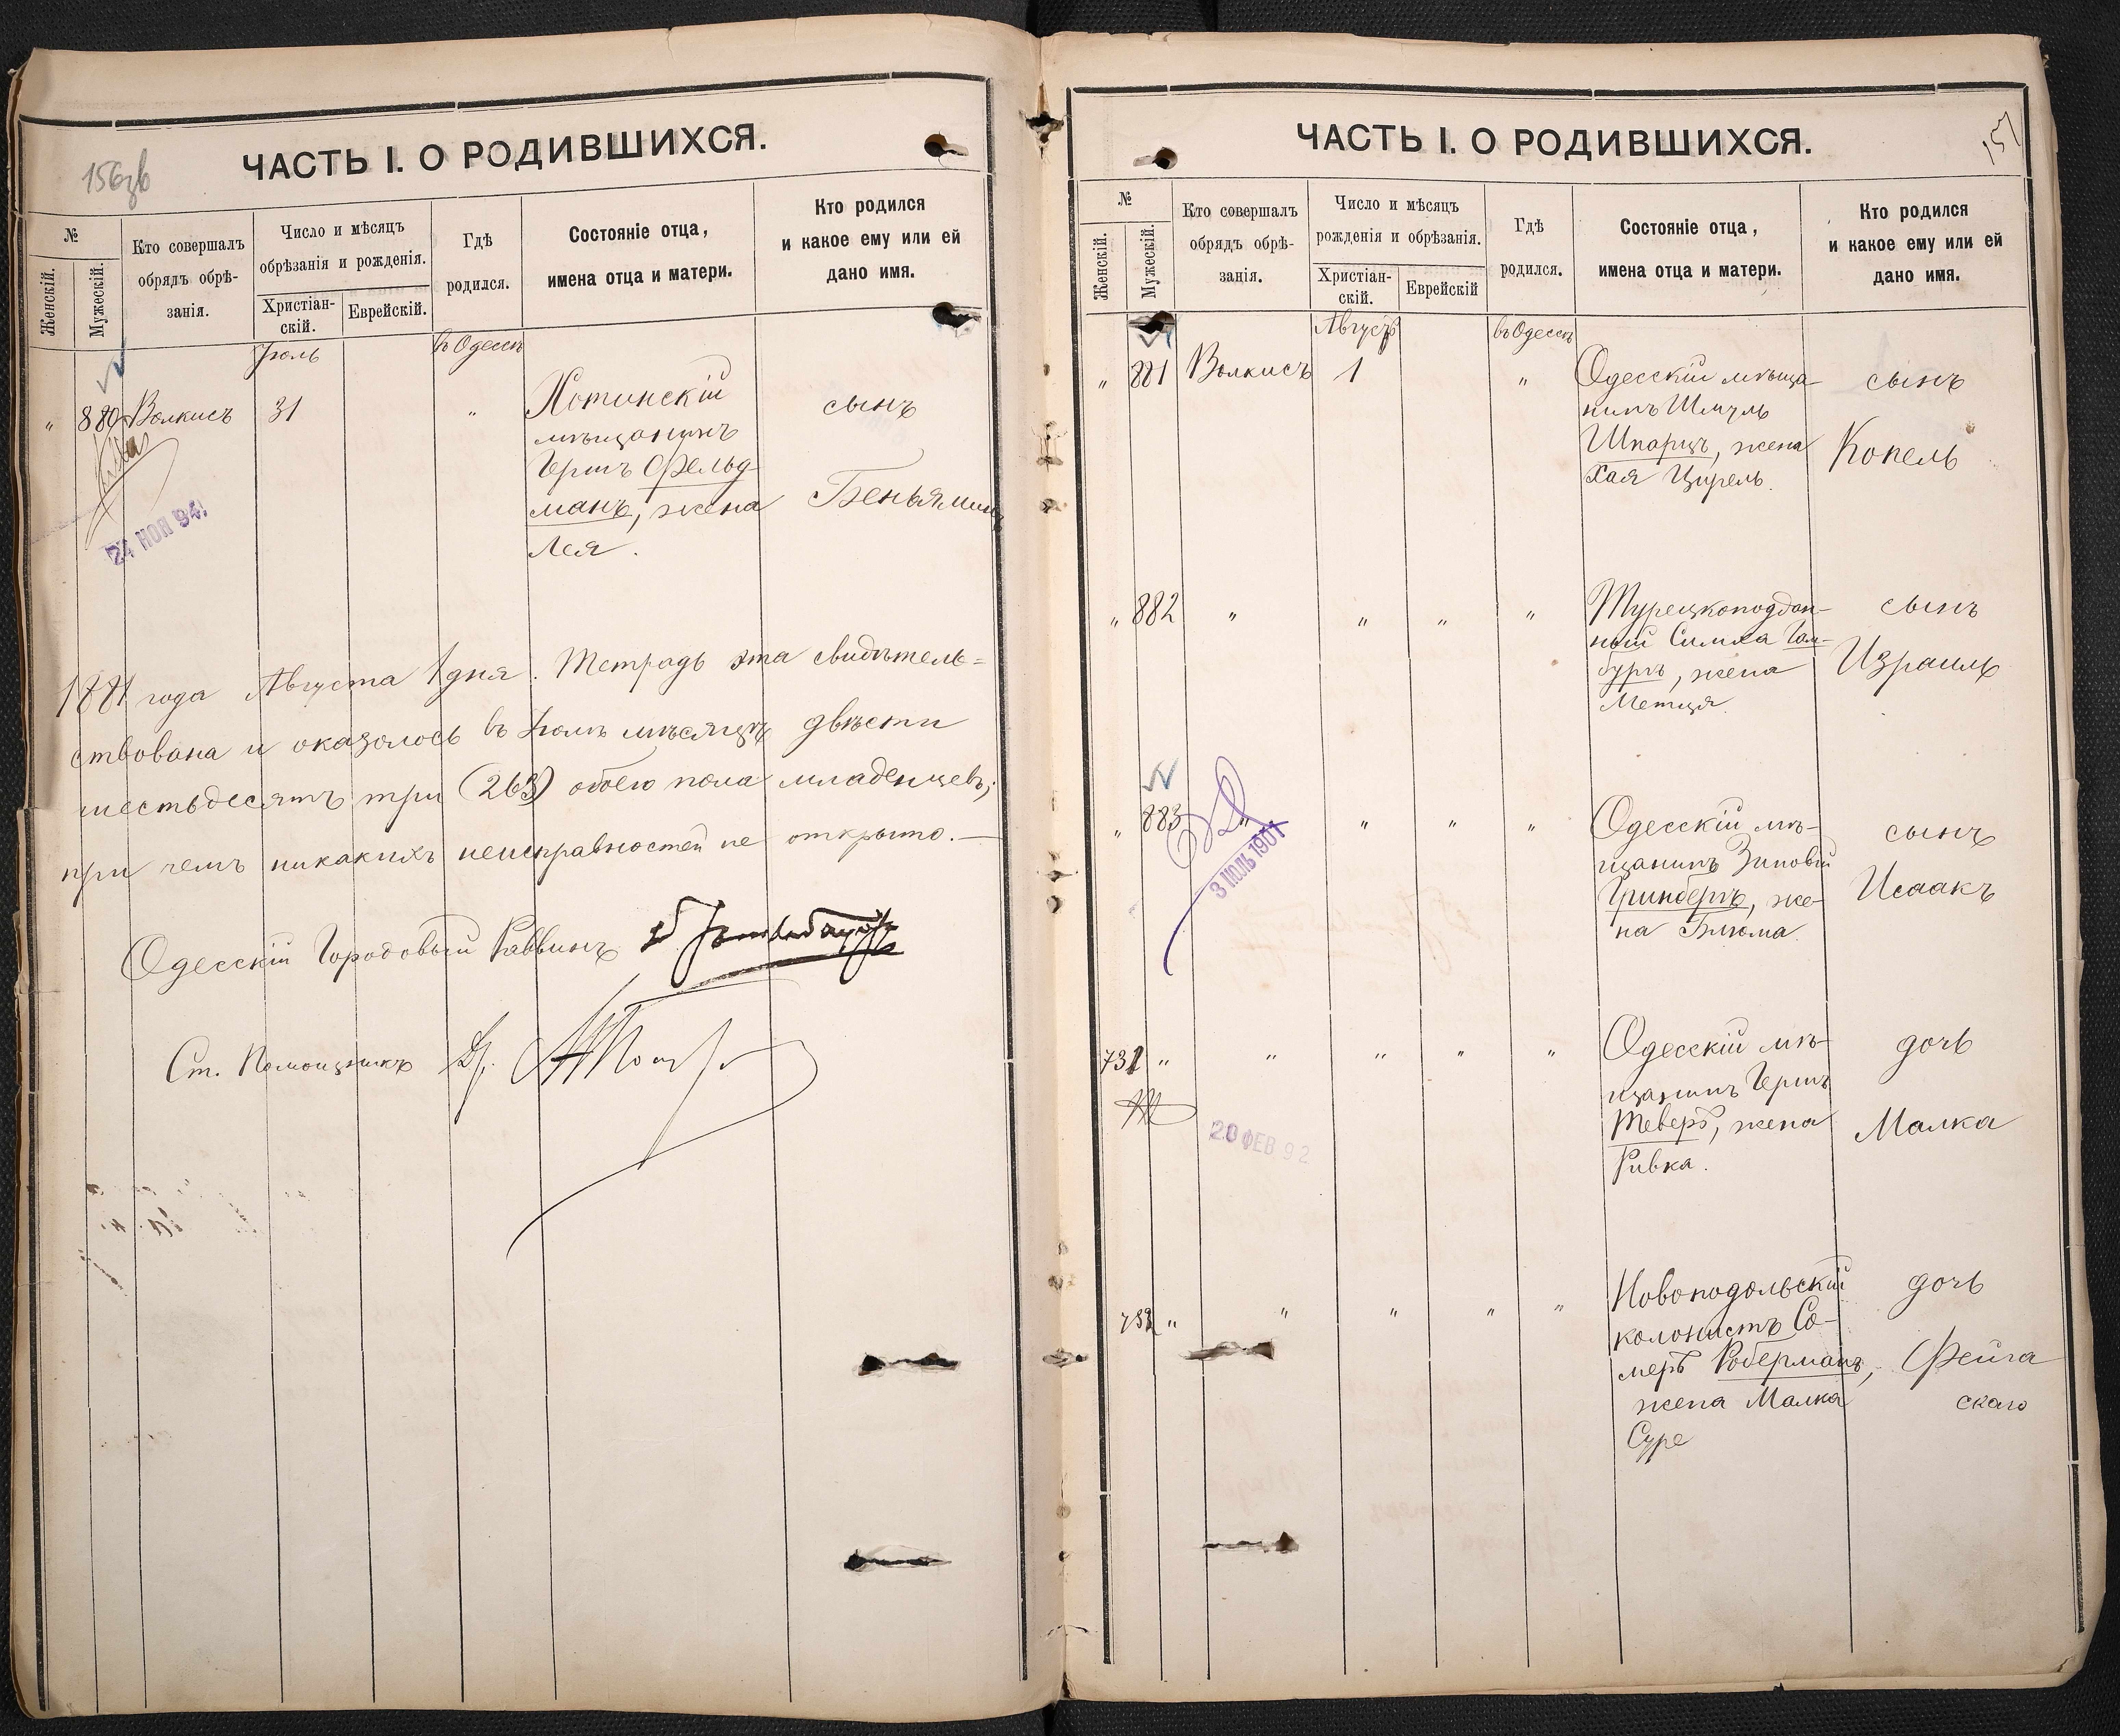 156зв
ЧАСТЬ I. О РОДИВШИХСЯ.
№
Женскій.
Мужескій.
Кто совершалъ
обрядъ обрѣ-
занія.
Число и мѣсяцъ
обрѣзанія и рожденія.
Христіан-
скій.
Еврейскій.
Гдѣ
родился.
Состояніе отца,
имена отца и матери.
Кто родился
и какое ему или ей
дано имя.
Іюль
въ Одессѣ
" 880 Волкисъ 31 " Хотинскій сынъ
мѣщанинъ
Гершъ Фельд-
манъ, жена Беньяминъ
Лея.
24 НОЯ 94
1881 года Августа 1 дня. Тетрадь эта свидѣтель=
ствована и оказалось въ Іюлѣ мѣсяцѣ двѣсти
шестьдесятъ три (263) обоего пола младенцевъ;
при чемъ никакихъ неисправностей не открыто.—
Одесскій Городовый Раввинъ
Ст. Помощникъ
157
ЧАСТЬ I. О РОДИВШИХСЯ.
№
Женскій.
Мужескій.
Кто совершалъ
обрядъ обрѣ-
занія.
Число и мѣсяцъ
рожденія и обрѣзанія.
Христіан-
скій.
Еврейскій
Гдѣ
родился.
Состояніе отца,
имена отца и матери.
Кто родился
и какое ему или ей
дано имя.
Августъ
въ Одессѣ
" 881 Волкисъ 1 " Одесскій мѣща- сынъ
нинъ Шмуль
Шварцъ, жена Копель
Хая Цирель.
" 882 " " " " Турецкоподдан- сынъ
ный Симха Гам-
бургъ, жена Израиль
Метця.
" 883 " " " " Одесскій мѣ- сынъ
щанинъ Зиновій
Гринбергъ, же- Исаакъ
на Блюма.
3 ІЮЛЬ 1901
731 " " " " " Одесскій мѣ- дочь
щанинъ Гершъ
Теверъ, жена Малка
Ривка.
20 ФЕВ 92
732 " " " " " Новоподольскій дочь
колонистъ Со-
меръ Роберманъ, Фейга
жена Малка
Суре